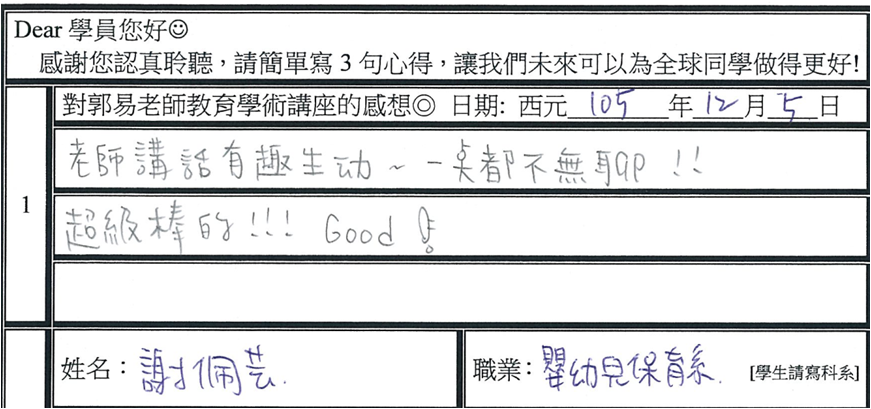 Dear 學員您好☺
感謝您認真聆聽，請簡單寫 3 句心得，讓我們未來可以為全球同學做得更好!
對郭易老師教育學術講座的感想◎ 日期: 西元 105 年 12 月 5 日
老師講話有趣生动~一点都不無耶ap !!
1
超級棒的!!! Good!
姓名：謝佩芸.
職業：嬰幼兒保育系. [學生請寫科系]